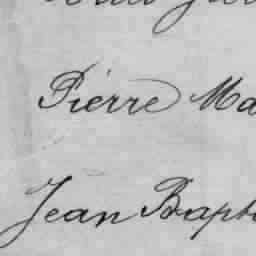 Pierre Ma
Jean Bapt